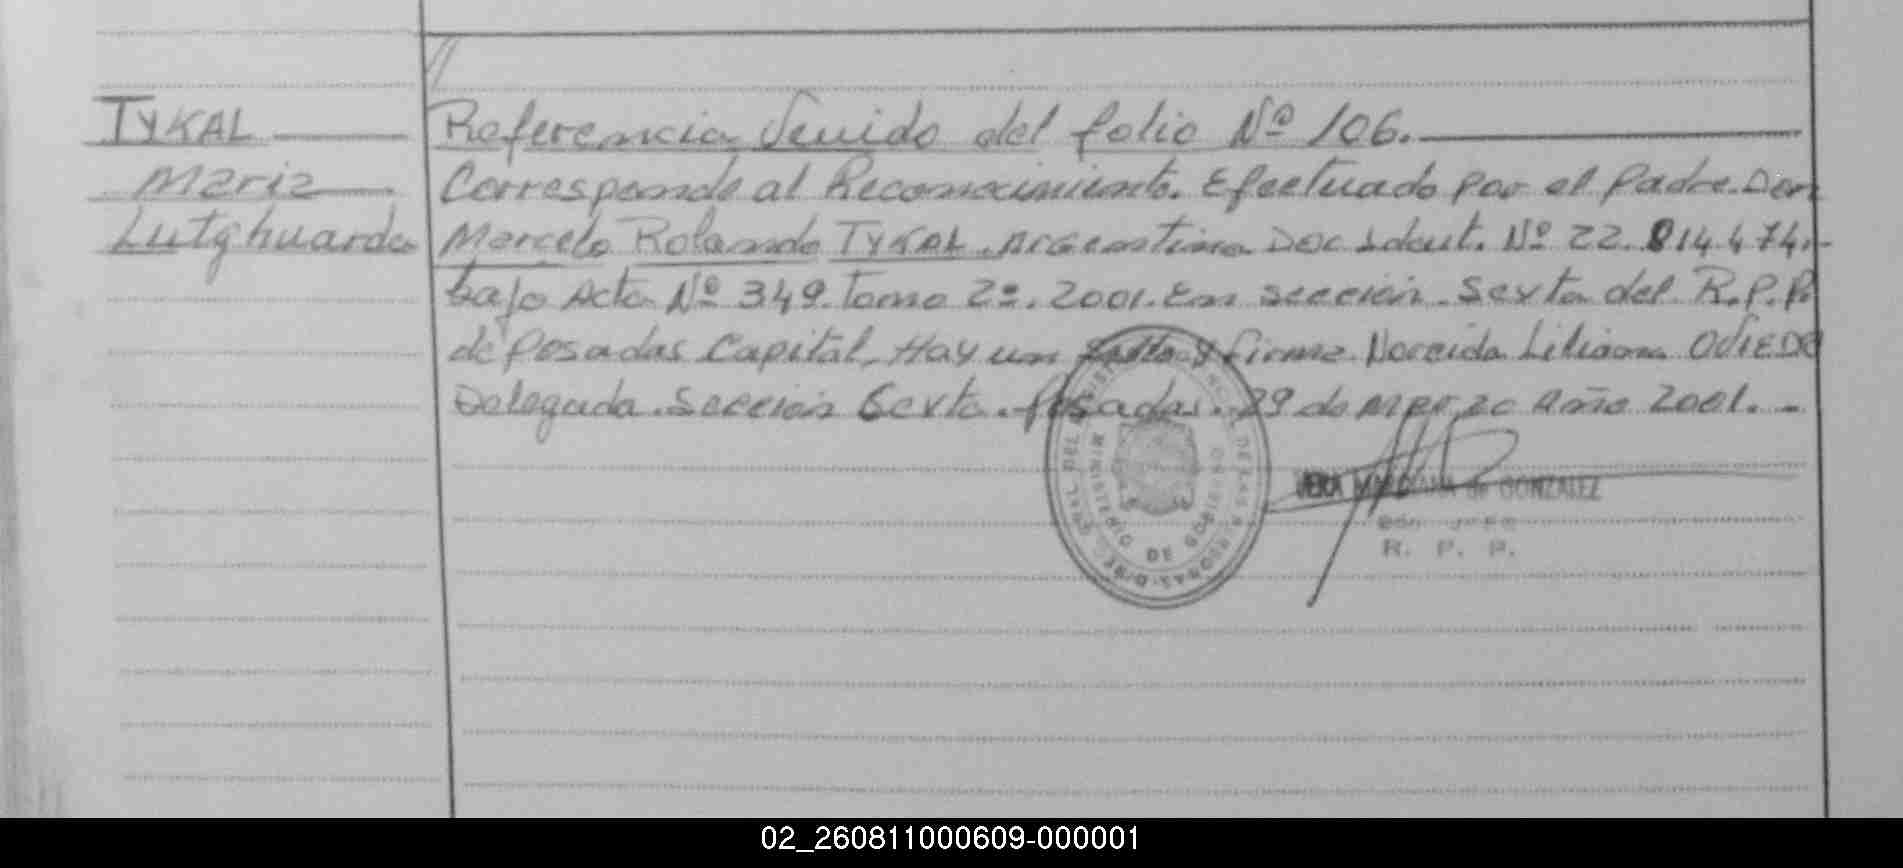 TYKAL
Maria
Lutghuarda
Referencia Venido del folio Nº 106.
Corresponde al Reconocimiento. Efectuado por el Padre. Don
Marcelo Rolando TYKAL. Argentino Doc Ident. Nº 22.814.474.-
bajo Acta Nº 349. Tomo 2º. 2001. En sección. Sexta del R.P.P.
de Posadas Capital. Hay un sello y firma Liliana OVIEDO
Delegada. Sección Sexta. Posadas. 29 de Marzo Año 2001. -
MINISTERIO DE GOBIERNO
VERA de GONZALEZ
R. P. P.
02_260811000609-000001